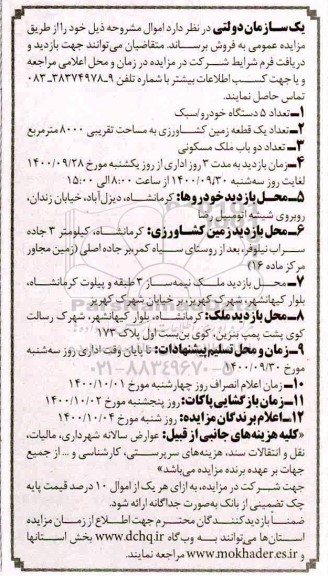 یک سازمان دولتی در نظر دارد اموال مشروحه ذیل خود را از طریق
مزایده عمومی به فروش برساند. متقاضیان می‌توانند جهت بازدید و
دریافت فرم شرایط شرکت در مزایده در زمان و محل اعلامی مراجعه
و یا جهت کسب اطلاعات بیشتر با شماره تلفن ۹-۳۸۳۷۴۹۷۸-۰۸۳
تماس حاصل نمایند.
۱- تعداد ۵ دستگاه خودرو/سبک
۲- تعداد یک قطعه زمین کشاورزی به مساحت تقریبی ۸۰۰۰ مترمربع
۳- تعداد دو باب ملک مسکونی
۴- زمان بازدید به مدت ۳ روز اداری از روز یکشنبه مورخ ۱۴۰۰/۰۹/۲۸
لغایت روز سه‌شنبه ۱۴۰۰/۰۹/۳۰ از ساعت ۸:۰۰ الی ۱۵:۰۰
۵- محل بازدید خودروها: کرمانشاه، دیزل‌آباد، خیابان زندان،
روبروی شیشه اتومبیل رضا
۶- محل بازدید زمین کشاورزی: کرمانشاه، کیلومتر ۳ جاده
سراب نیلوفر، بعد از روستای سیاه کمر، بر جاده اصلی (زمین مجاور
مرکز ماده ۱۶)
۷- محل بازدید ملک نیمه‌ساز ۳ طبقه و پیلوت کرمانشاه،
بلوار کیهانشهر، شهرک کهریز، بر خیابان شهرک کهریز
۸- محل بازدید ملک: کرمانشاه، بلوار کیهانشهر، شهرک رسالت
کوی پشت پمپ بنزین، کوی بن‌بست اول پلاک ۱۷۳
۹- زمان و محل تسلیم پیشنهادات: تا پایان وقت اداری روز سه‌شنبه
مورخ ۱۴۰۰/۰۹/۳۰
۱۰- زمان اعلام انصراف روز چهارشنبه مورخ ۱۴۰۰/۱۰/۰۱
۱۱- زمان بازگشایی پاکات: روز پنجشنبه مورخ ۱۴۰۰/۱۰/۰۲
۱۲- اعلام برندگان مزایده: روز شنبه مورخ ۱۴۰۰/۱۰/۰۴
«کلیه هزینه‌های جانبی از قبیل: عوارض سالانه شهرداری، مالیات،
نقل و انتقالات سند، هزینه‌های سرپرستی، کارشناسی و ... از جمیع
جهات بر عهده برنده مزایده می‌باشد»
جهت شرکت در مزایده، به ازای هر یک از اموال ۱۰ درصد قیمت پایه
چک تضمینی از بانک به‌صورت جداگانه ارائه شود.
ضمناً بازدیدکنندگان محترم جهت اطلاع از زمان مزایده
استان‌ها می‌توانند به وب‌گاه www.dchq.ir بخش استانها
و www.mokhader.es.ir مراجعه نمایند.
۰۲۱-۸۸۳۴۹۶۷۰-۵